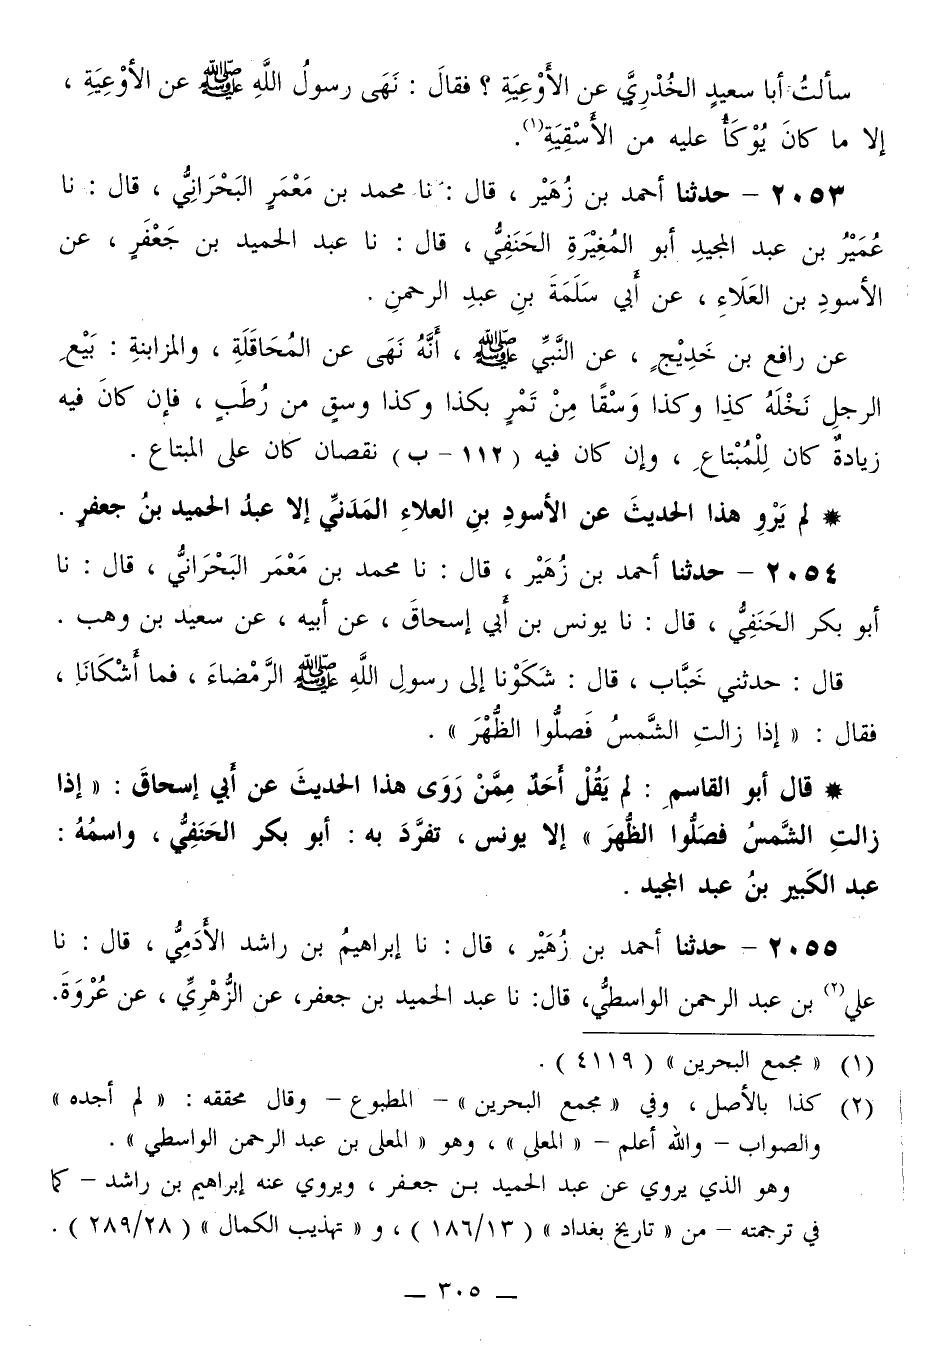 سألتُ أبا سعيدٍ الخُدْرِيَّ عن الأَوْعِيَةِ ؟ فقالَ : نَهَى رسولُ اللَّهِ ﷺ عن الأَوْعِيَةِ ،
إلا ما كانَ يُوْكَأُ عليه من الأَسْقِيَةِ(١).
٢٠٥٣ – حدثنا أحمد بن زُهَيْر ، قال : نا محمد بن مَعْمَرٍ البَحْرَانِيُّ ، قال : نا
عُمَيْرُ بن عبد المجيدِ أبو المُغِيْرَةِ الحَنَفِيُّ ، قال : نا عبد الحميد بن جَعْفَرٍ ، عن
الأسودِ بن العَلَاءِ ، عن أَبي سَلَمَةَ بنِ عبدِ الرحمنِ .
عن رافع بن خَدِيْجٍ ، عن النَّبيِّ ﷺ ، أَنَّهُ نَهَى عن المُحَاقَلَةِ ، والمزابنةِ : بَيْعِ
الرجلِ نَخْلَهُ كذا وكذا وَسْقًا مِنْ تَمْرٍ بكذا وكذا وسقٍ من رُطَبٍ ، فإن كانَ فيه
زيادةٌ كان لِلْمُبْتاعِ ، وإن كان فيه ( ١١٢ – ب ) نقصان كان على المبتاع .
* لم يَرْوِ هذا الحديثَ عن الأسودِ بنِ العلاءِ المَدَنيِّ إلا عبدُ الحميد بنُ جعفرٍ .
٢٠٥٤ – حدثنا أحمد بن زُهَيْر ، قال : نا محمد بن مَعْمَر البَحْرَانيُّ ، قال : نا
أبو بكر الحَنَفِيُّ ، قال : نا يونس بن أَبي إسحاقَ ، عن أبيه ، عن سعيد بن وهب .
قال : حدثني خَبَّاب ، قال : شَكَوْنا إلى رسولِ اللَّهِ ﷺ الرَّمْضاءَ ، فما أَشْكَانَا ،
فقال : « إذا زالتِ الشَّمسُ فَصلُّوا الظُّهْرَ » .
* قال أبو القاسمِ : لم يَقُلْ أَحَدٌ مِمَّنْ رَوَى هذا الحديثَ عن أَبي إسحاقَ : « إذا
زالتِ الشَّمسُ فصَلُّوا الظُّهرَ » إلا يونس ، تفرَّدَ به : أبو بكر الحَنَفِيُّ ، واسمُهُ :
عبد الكَبير بنُ عبد المجيد .
٢٠٥٥ – حدثنا أحمد بن زُهَيْر ، قال : نا إبراهيمُ بن راشد الأَدَمِيُّ ، قال : نا
علي(٢) بن عبد الرحمن الواسطيُّ، قال: نا عبد الحميد بن جعفر، عن الزُّهْريِّ ، عن عُرْوَةَ.
(١) « مجمع البحرين » ( ٤١١٩ ) .
(٢) كذا بالأصل ، وفي « مجمع البحرين » – المطبوع – وقال محققه : « لم أجده »
والصواب – والله أعلم – « المعلى » ، وهو « المعلى بن عبد الرحمن الواسطي » .
وهو الذي يروي عن عبد الحميد بن جعفر ، ويروي عنه إبراهيم بن راشد – كما
في ترجمته – من « تاريخ بغداد » ( ١٨٦/١٣ ) ، و « تهذيب الكمال » ( ٢٨٩/٢٨ ) .
— ٣٠٥ —